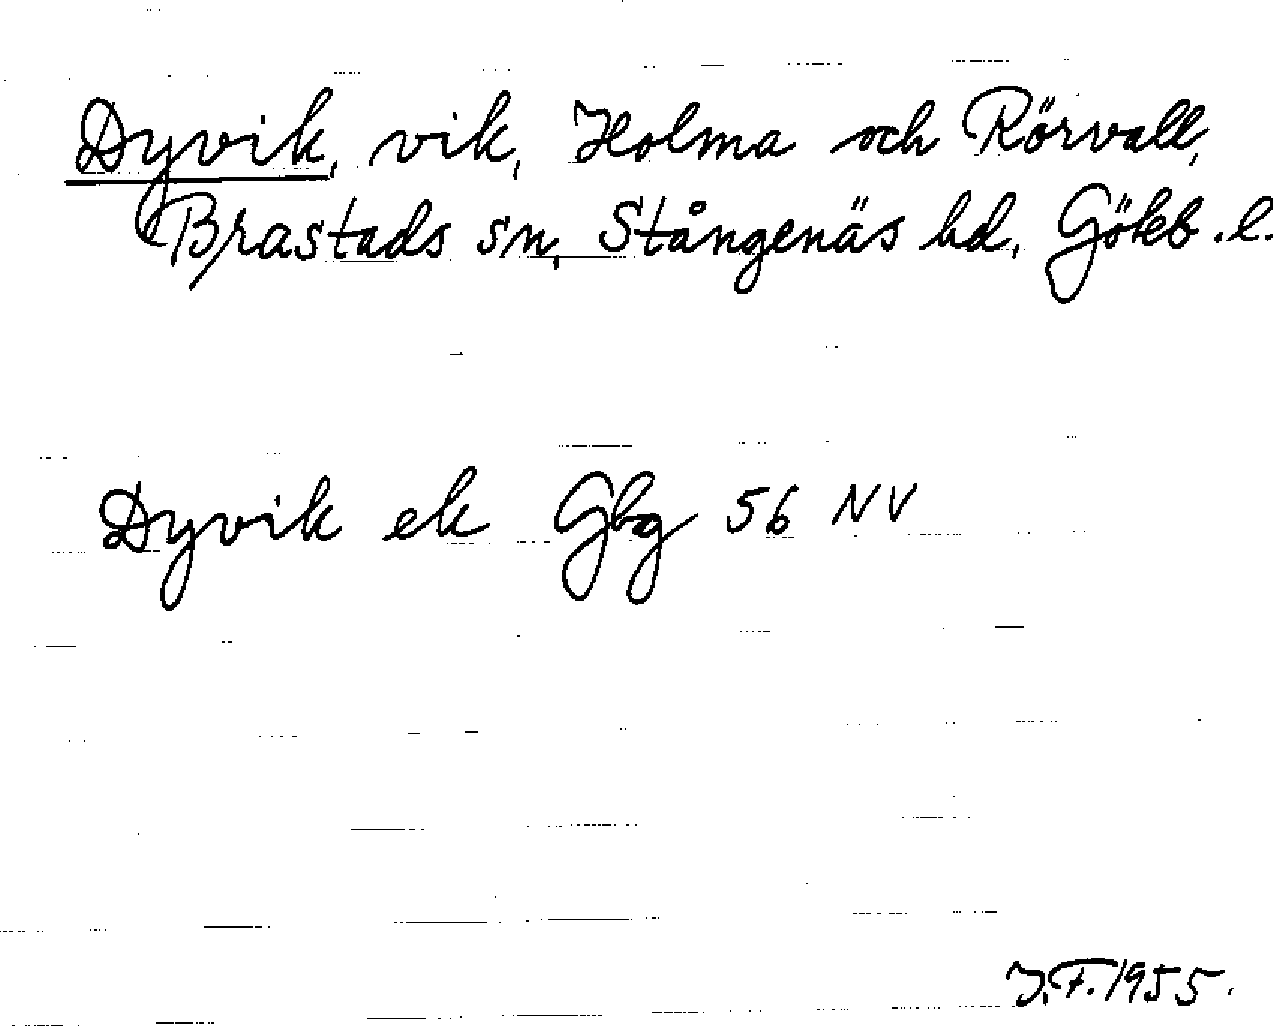 Dyvik, vik, Holma och Rörvall,
Brastads sn, Stångenäs hd, Gökb. l.
Dyvik ek Gbg 56 NV
J.F. 1955.